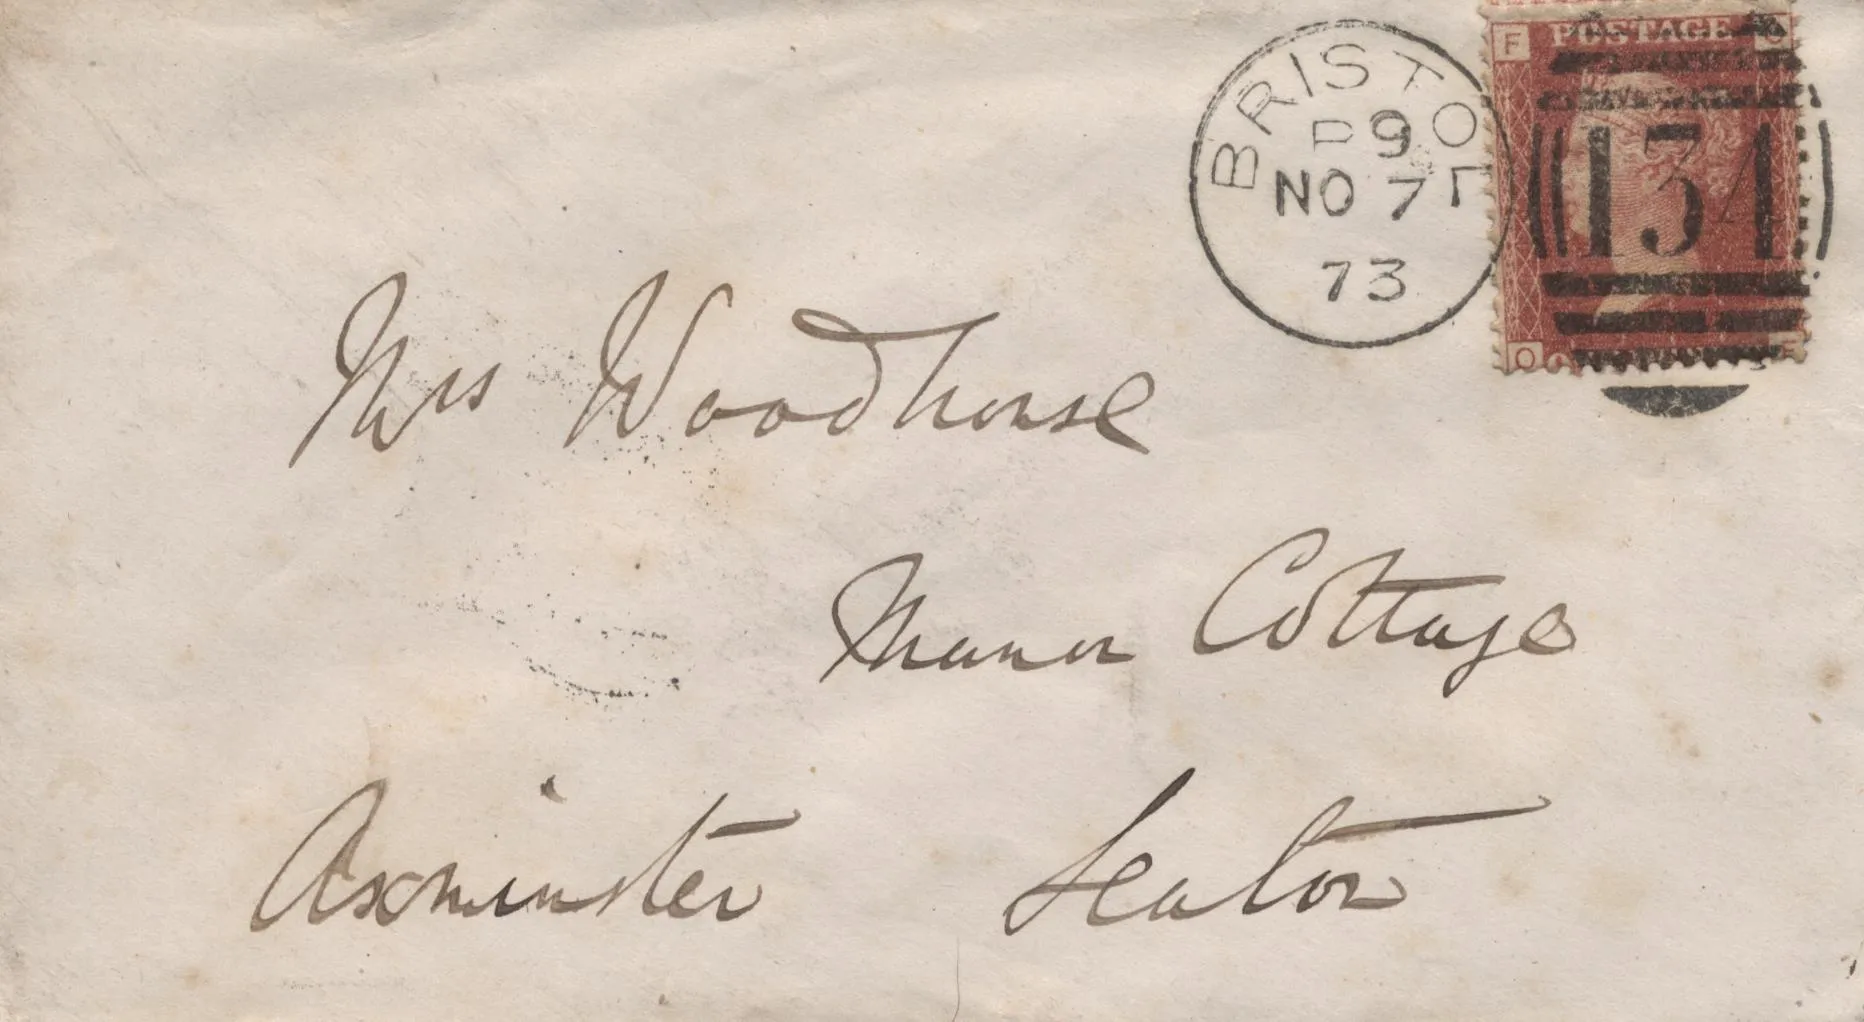 BRISTOL
9
NO 7
73
F POSTAGE O
134
O
Mrs Woodhouse
Manor Cottage
Axminster Seaton